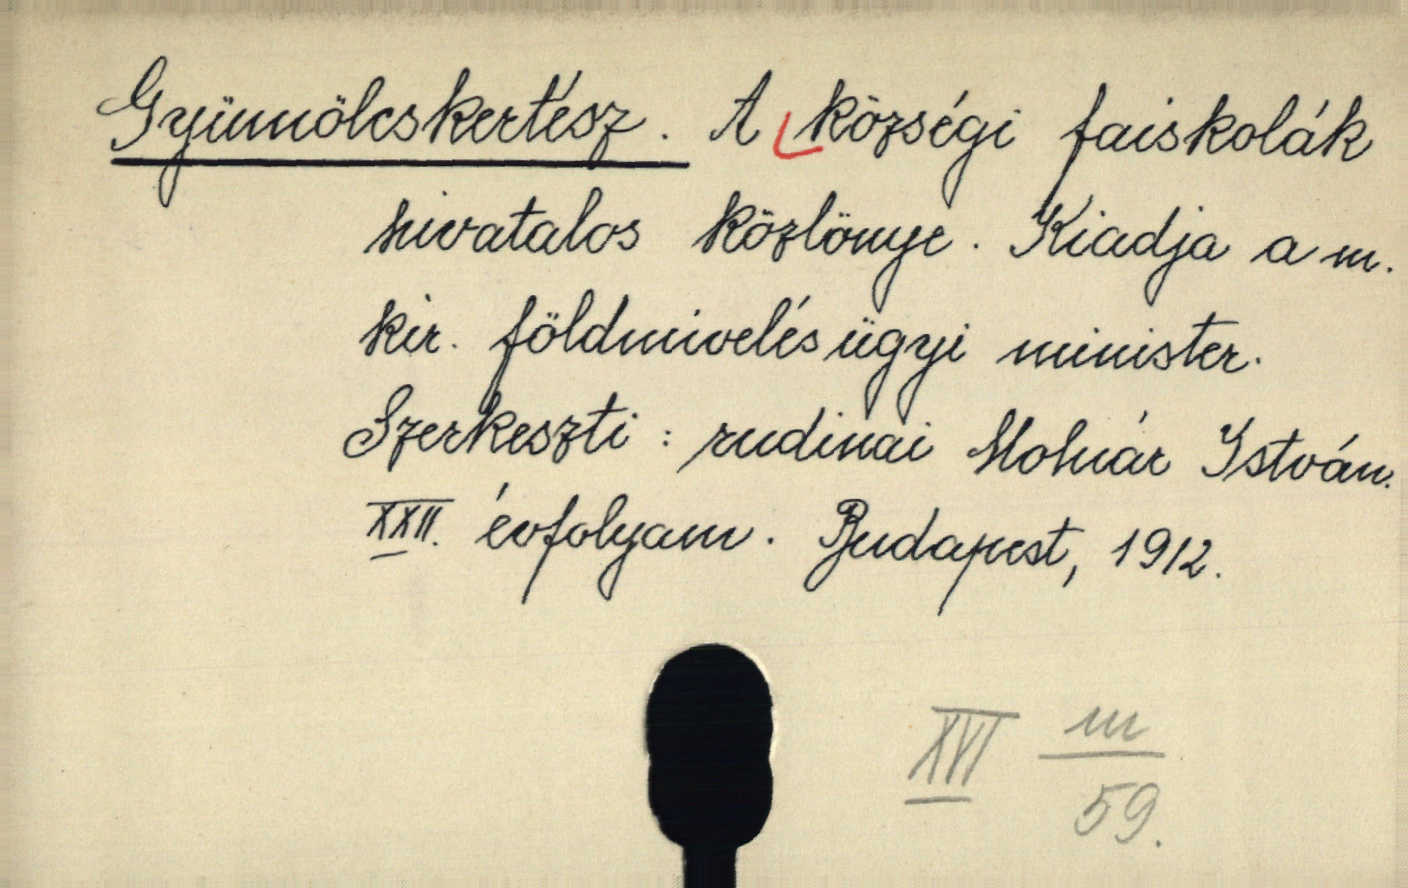 Gyümölcskertész. A községi faiskolák
hivatalos közlönye. Kiadja a m.
kir. földmivelésügyi minister.
Szerkeszti: rudinai Molnár István.
XXII. évfolyam. Budapest, 1912.
XVI m/59.